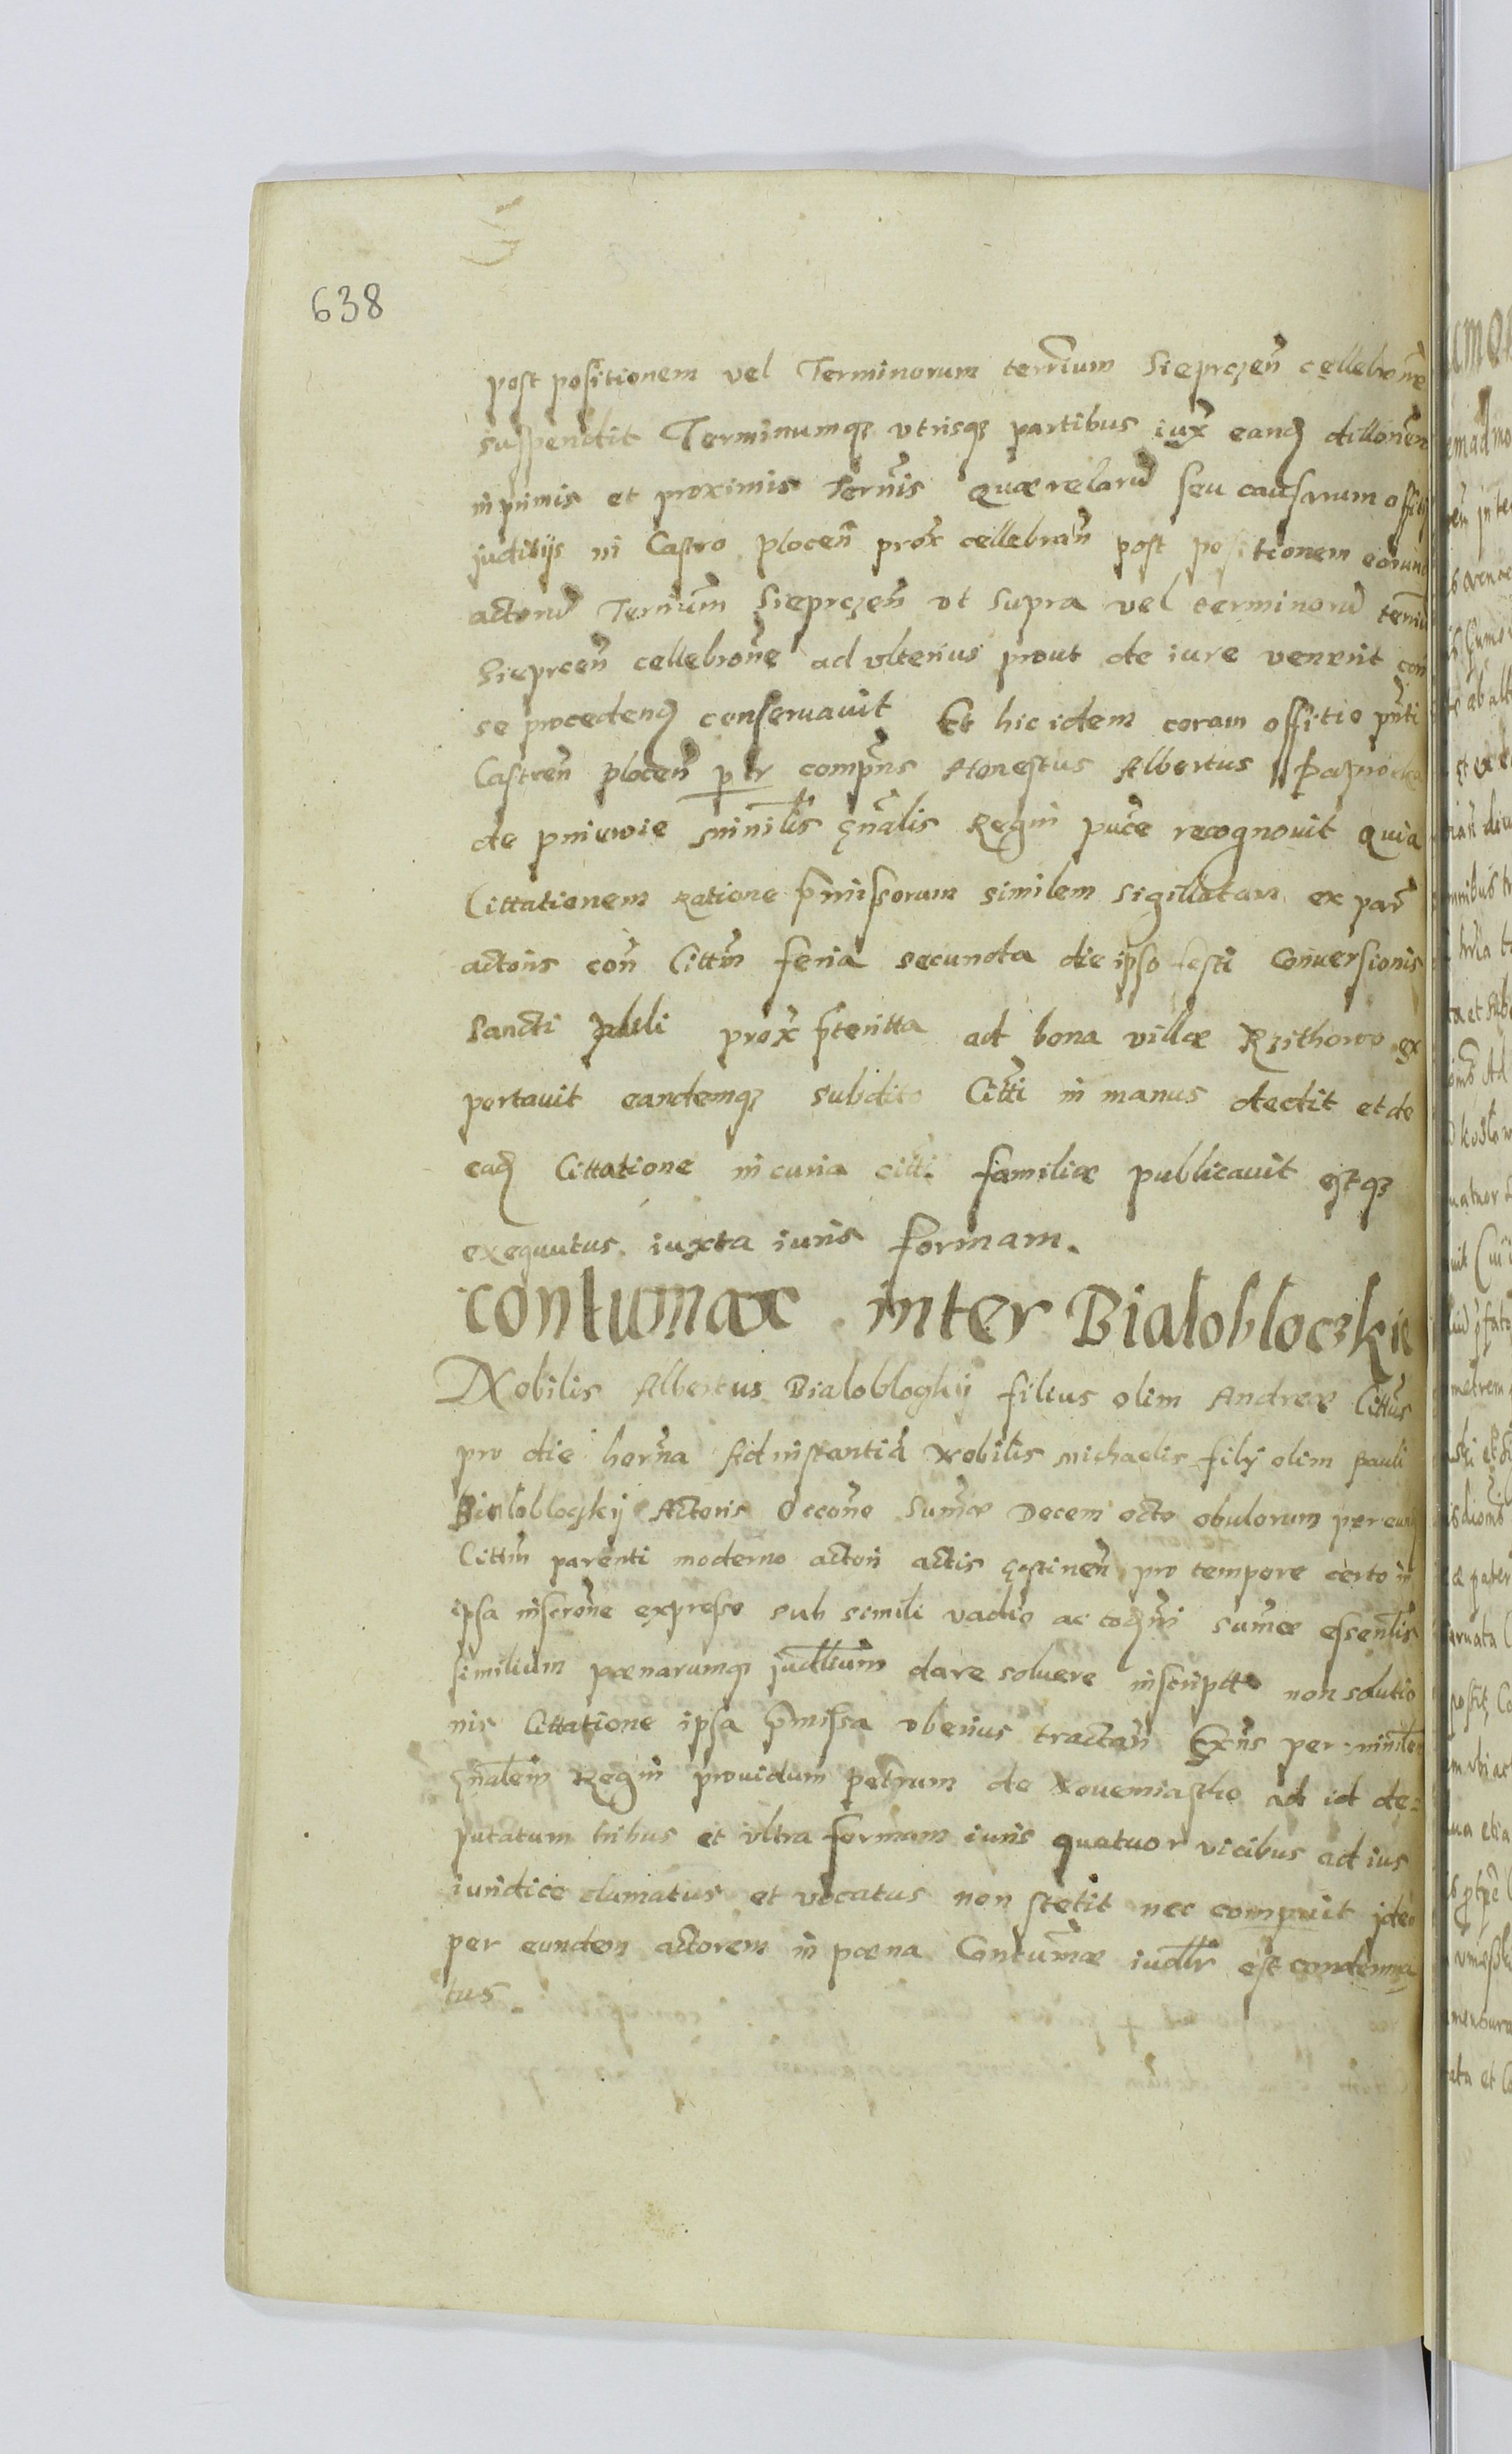 638
post positionem vel Terminorum terrium Sieprczen̄ cellebrone
suspendit Terminumqȝ vtrisqȝ partibus iux̄ eand dillonen
in primis et proximis Terͫis Quærelarū seu causarum offitij
juditijs in Castro plocen̄ prox̄ cellebran̄ post positionem eorund
actorū Terrium̄ Sieprczen̄ vt supra vel terminorū terriū
Sieprcen̄ cellebrone ad vlterius prout de iure venerit con
se procedend conseruauit Et hic idem coram offitio pn̄ti
Castren̄ plocen̄ p tr compn̄s Honestus Albertus
de pniewie Minilis gn̄alis Regni puce recognouit quia
Cittationem Ratione p̄missorum similem sigillatam ex par̄
actoris con̄ Cittm̄ feria secunda die ipso festi Conuersionis
Sancti pauli prox̄ p̄teritta ad bona villæ Rzithowo ex
portauit eandemqȝ subdito Citti in manus dedit et de
ead Cittatione in curia citti familiæ publicauit estqȝ
exequutus iuxta iuris formam.
Contumax inter Bialobloczkie
Nobilis Albertus Bialobloczkij filius olim Andreæ Citt̄us
pro die hor̄na Ad instantiā Nobilis Michaelis filij olim Pauli
Bialobloczkij Actoris Occone Sum̄æ Decem octo obulorum per eund
Cittm̄ parenti moderno actori actis gostinen̄ pro tempore certo in
ipsa inscrone expresso sub simili vadio ac sum̄æ essenlis
similium pænarumqȝ judlium dare soluere inscriptæ non solutio
nis Cittatione ipsa p̄missa vberius tractan̄ Exn̄s per minilem
gn̄alem Regni prouidum petrum de Nouemiastho ad id de=
putatum tribus et vltra formam iuris quatuor vicibus ad ius
iuridice clamatus et vocatus non stetit nec comparuit ideo
per eundem actorem in pæna Contum̄æ iudlr est condemna
tus.